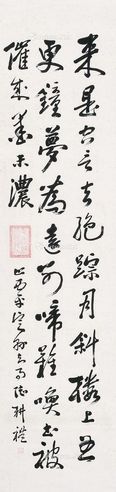 来是空言去絕踪月斜樓上五
更鐘夢為遠別啼難喚書被
催成墨未濃